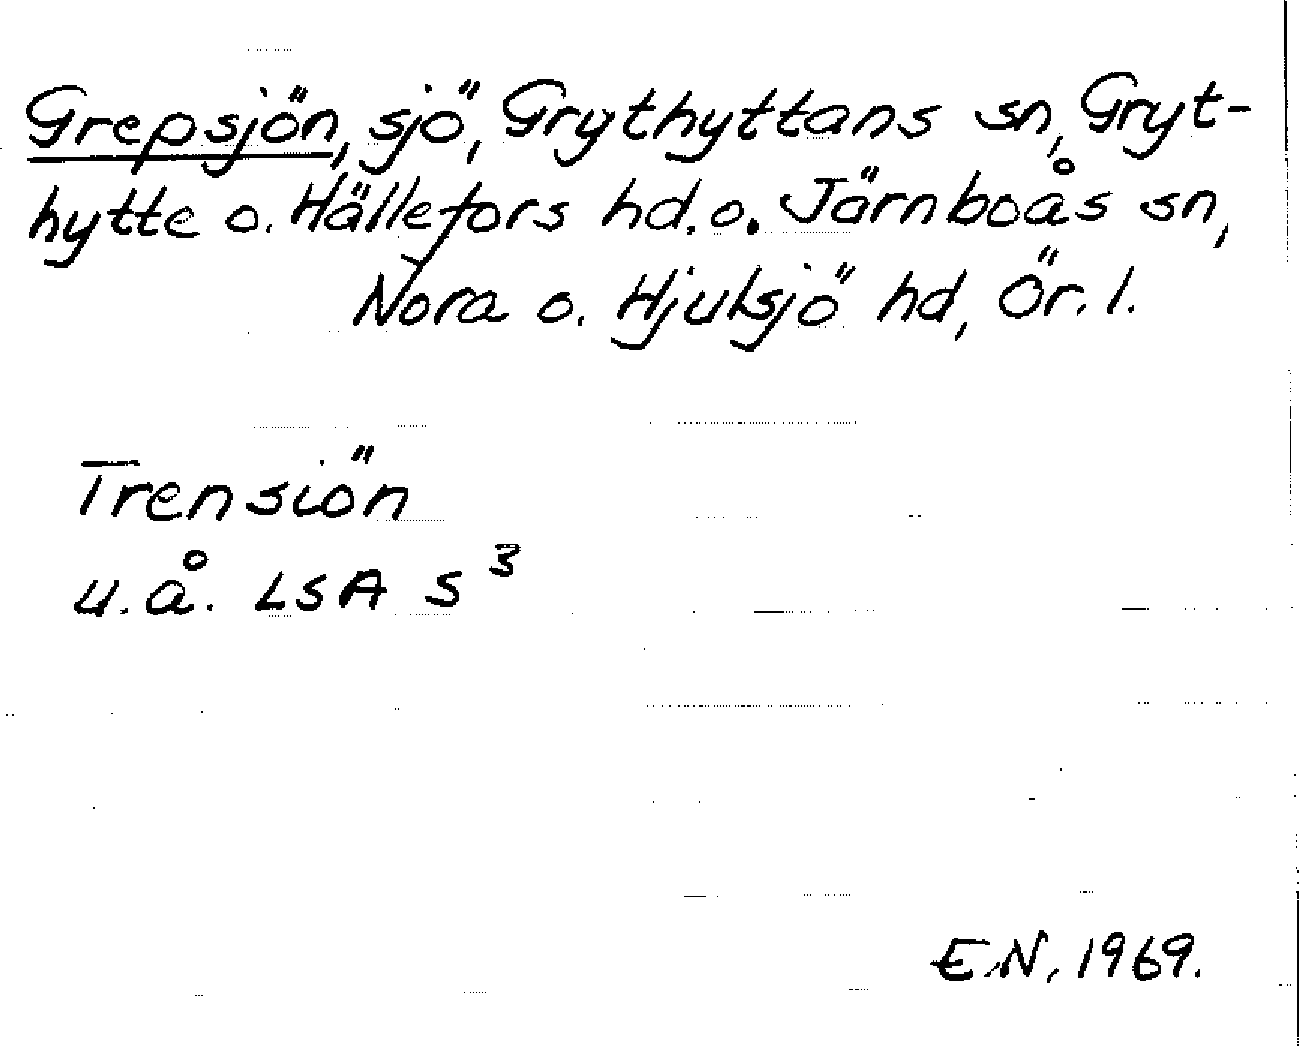 Grepsjön, sjö, Grythyttans sn, Gryt-
hytte o. Hällefors hd. o. Järnboås sn,
Nora o. Hjulsjö hd, Ör. l.
Trensiön
u.å. LSA S 3
E.N, 1969.